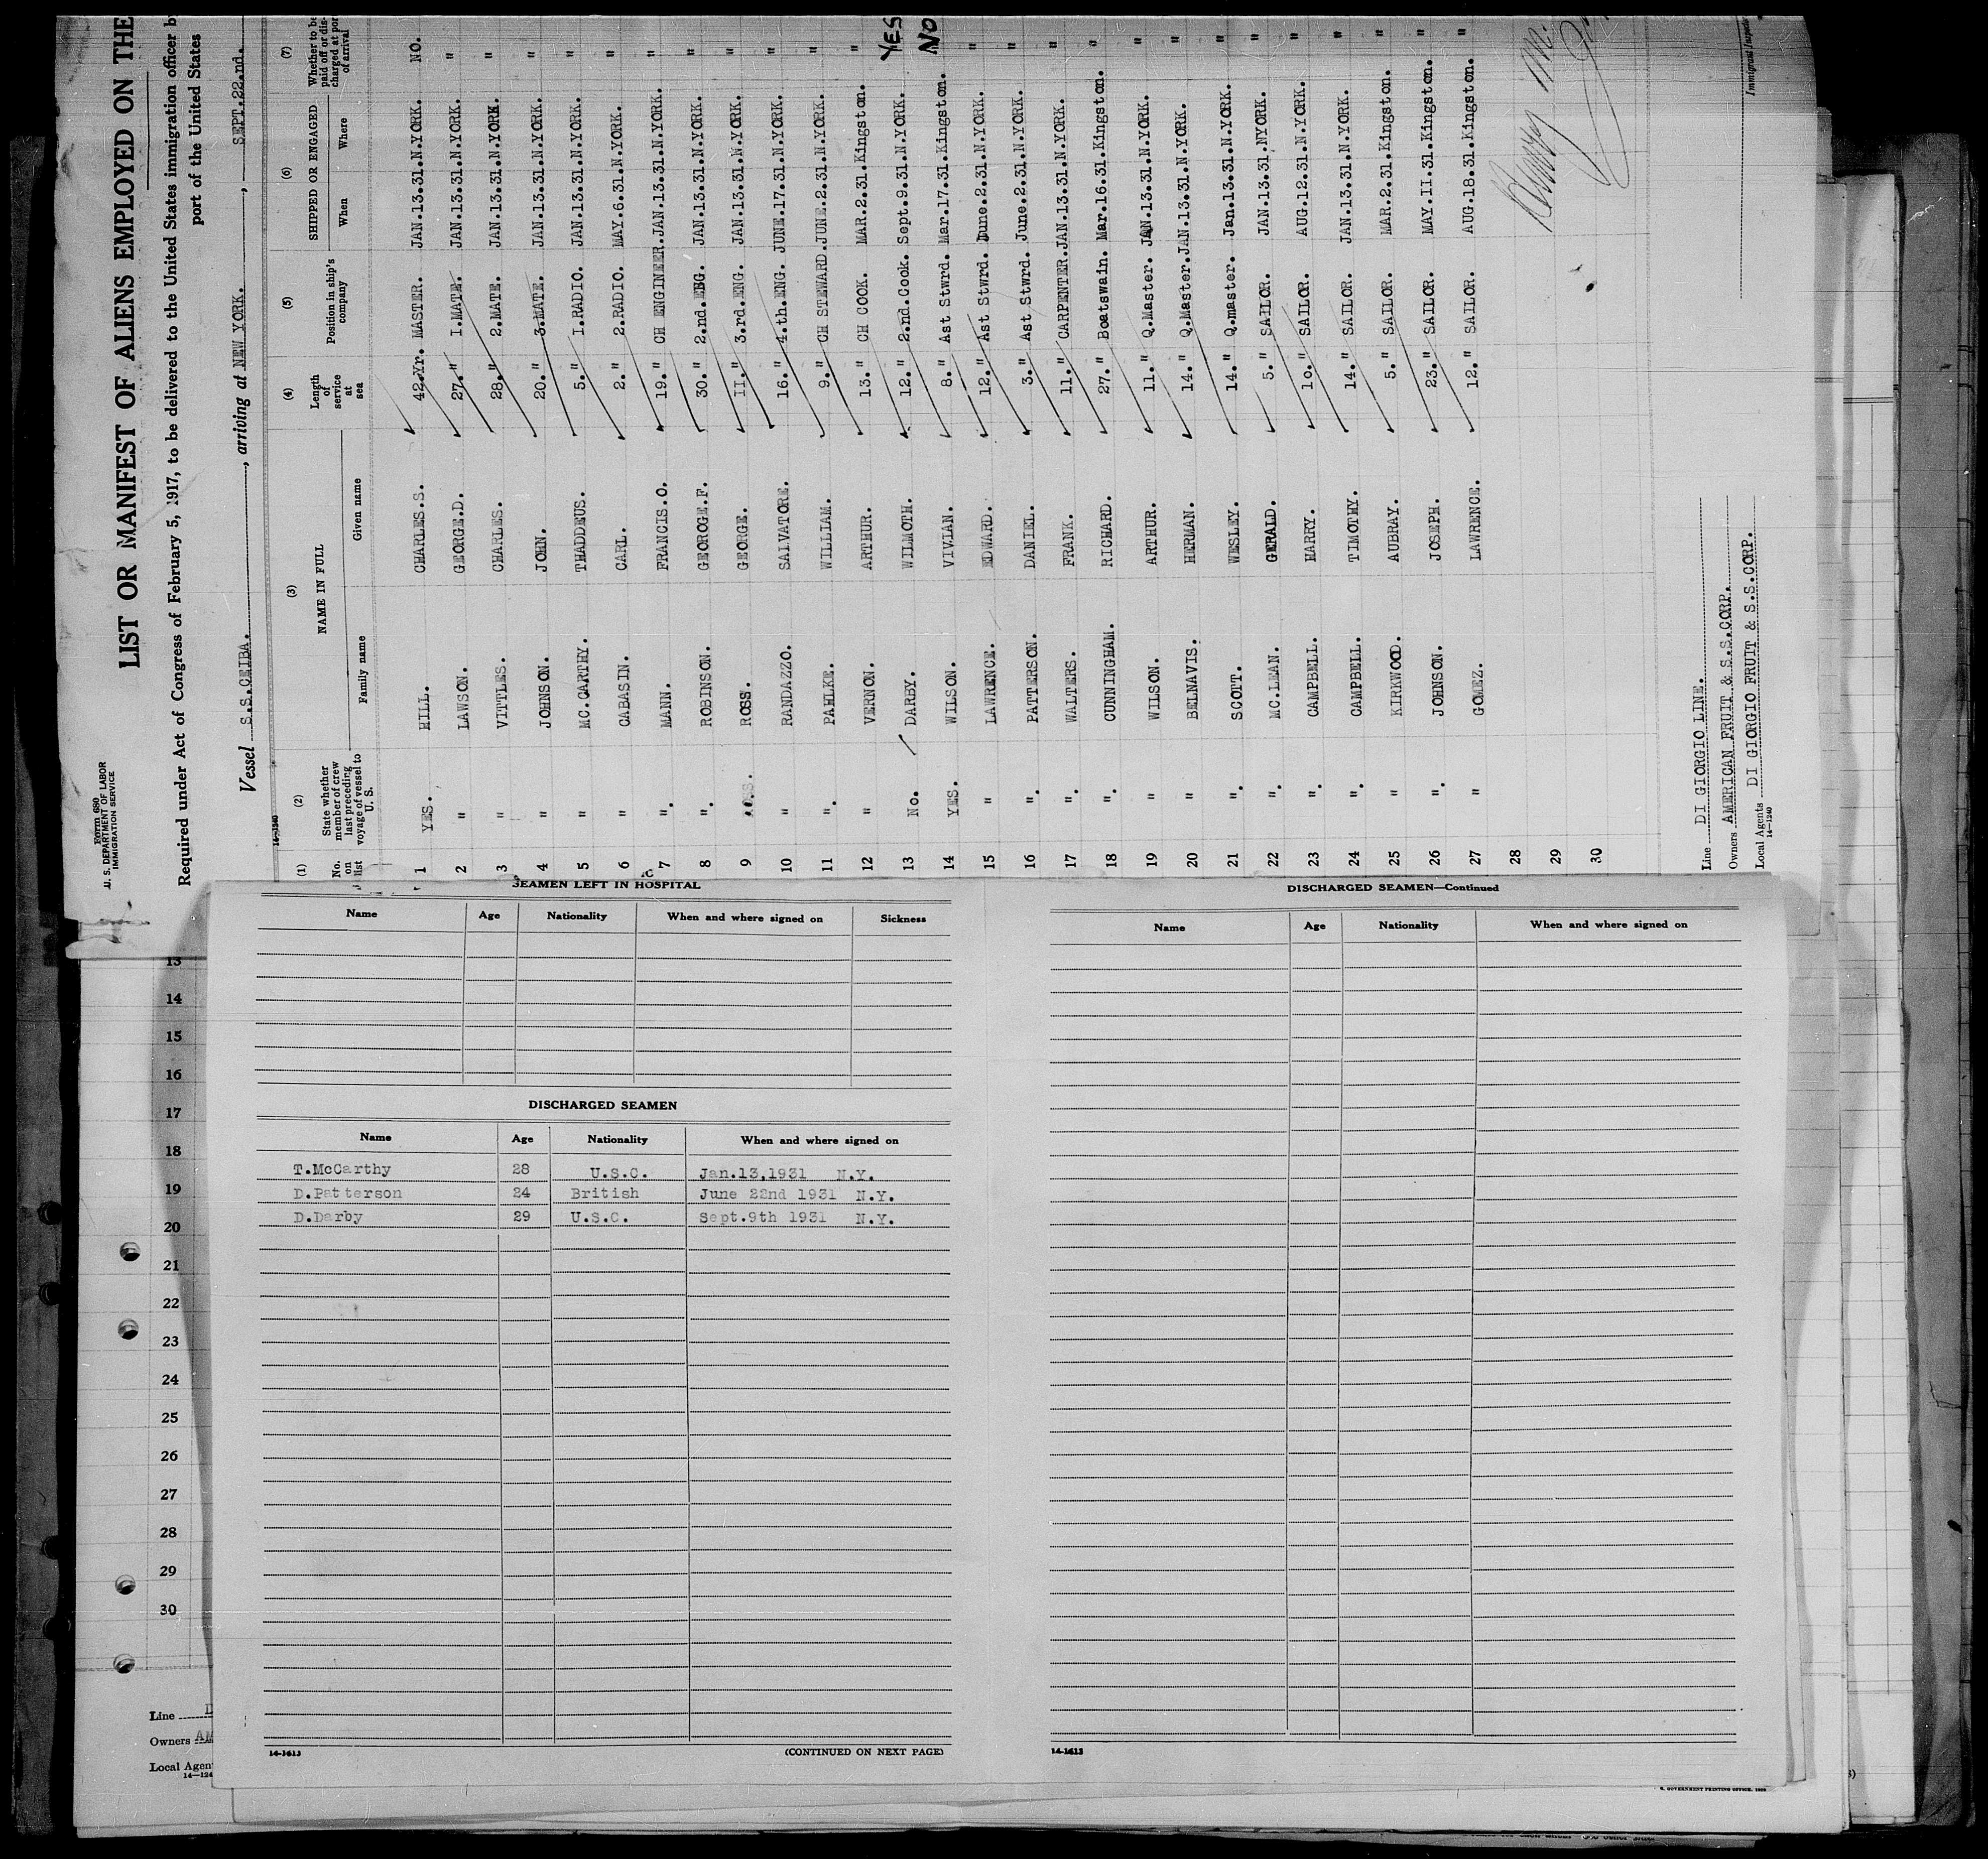 Form 680
U. S. DEPARTMENT OF LABOR
IMMIGRATION SERVICE
LIST OR MANIFEST OF ALIENS EMPLOYED ON THE
Required under Act of Congress of February 5, 1917, to be delivered to the United States immigration officer
port of the United States
Vessel S.S.CEIBA., arriving at NEW YORK., SEPT.22.nd.
14-1240
(1) (2) (3) (4) (5) (6) (7)
No. on list State whether member of crew last preceding voyage of vessel to U. S. NAME IN FULL Length of service at sea Position in ship's company SHIPPED OR ENGAGED Whether to be paid off or discharged at port of arrival
Family name Given name When Where
1 YES. HILL. CHARLES.S. 42.Yr. MASTER. JAN.13.31.N.YORK. NO.
2 " LAWSON. GEORGE.D. 27." I.MATE. JAN.13.31.N.YORK. "
3 " VITTLES. CHARLES. 28." 2.MATE. JAN.13.31.N.YORK. "
4 " JOHNSON. JOHN. 20." 3.MATE. JAN.13.31.N.YORK. "
5 " MC.CARTHY. THADDEUS. 5." I.RADIO. JAN.13.31.N.YORK. "
6 " CABASIN. CARL. 2." 2.RADIO. MAY.6.31.N.YORK. "
7 ". MANN. FRANCIS.O. 19." CH ENGINEER.JAN.13.31.N.YORK. "
8 ". ROBINSON. GEOROGE.F. 30." 2.nd.ENG. JAN.13.31.N.YORK. "
9 ROSS. GEORGE. II." 3.rd.ENG. JAN.13.31.N.YORK. "
10 " RANDAZZO. SALVATORE. 16." 4.th.ENG. JUNE.17.31.N.YORK. "
11 ". PAHLKE. WILLIAM. 9." CH STEWARD.JUNE.2.31.N.YORK. "
12 " VERNON. ARTHUR. 13." CH COOK. MAR.2.31.Kingston. "
13 No. DARBY. WILMOTH. 12." 2.nd.Cook. Sept.9.31.N.YORK. YES
14 YES. WILSON. VIVIAN. 8." Ast Stwrd. Mar.17.31.Kingston. NO
15 " LAWRENCE. EDWARD. 12." Ast Stwrd. June.2.31.N.YORK. "
16 ". PATTERSON. DANIEL. 3." Ast Stwrd. June.2.31.N.YORK. "
17 ". WALTERS. FRANK. 11." CARPENTER.JAN.13.31.N.YORK. "
18 ". CUNNINGHAM. RICHARD. 27." Boatswain. Mar.16.31.Kingston. "
19 " WILSON. ARTHUR. 11." Q.Master. JAN.13.31.N.YORK. "
20 " BELNAVIS. HERMAN. 14." Q.Master.JAN.13.31.N.YORK. "
21 ". SCOTT. WESLEY. 14." Q.master. Jan.13.31.N.YORK. "
22 ". MC.LEAN. GERALD. 5." SAILOR. JAN.13.31.NYORK. "
23 ". CAMPBELL. HARRY. 10." SAILOR. AUG.12.31.N.YORK. "
24 ". CAMPBELL. TIMOTHY. 14." SAILOR. JAN.13.31.N.YORK. "
25 " KIRKWOOD. AUBRAY. 5." SAILOR. MAR.2.31.Kingston. "
26 ". JOHNSON. JOSEPH. 23." SAILOR. MAY.II.31.Kingston. "
27 " GOMEZ. LAWRENCE. 12." SAILOR. AUG.18.31.Kingston. "
28
29
30
Line DI GIORGIO LINE.
Owners AMERICAN FRUIT & S.S.CORP.
Local Agents DI GIORGIO FRUIT & S.S.CORP.
14-1240
Immigrant Inspector
SEAMEN LEFT IN HOSPITAL
Name Age Nationality When and where signed on Sickness
DISCHARGED SEAMEN
Name Age Nationality When and where signed on
T.McCarthy 28 U.S.C. Jan.13,1931 N.Y.
D.Patterson 24 British June 22nd 1931 N.Y.
D.Darby 29 U.S.C. Sept.9th 1931 N.Y.
14-1613
(CONTINUED ON NEXT PAGE)
DISCHARGED SEAMEN—Continued
Name Age Nationality When and where signed on
14-1613
13
14
15
16
17
18
19
20
21
22
23
24
25
26
27
28
29
30
Line
Owners
Local Agen
14-124
GOVERNMENT PRINTING OFFICE